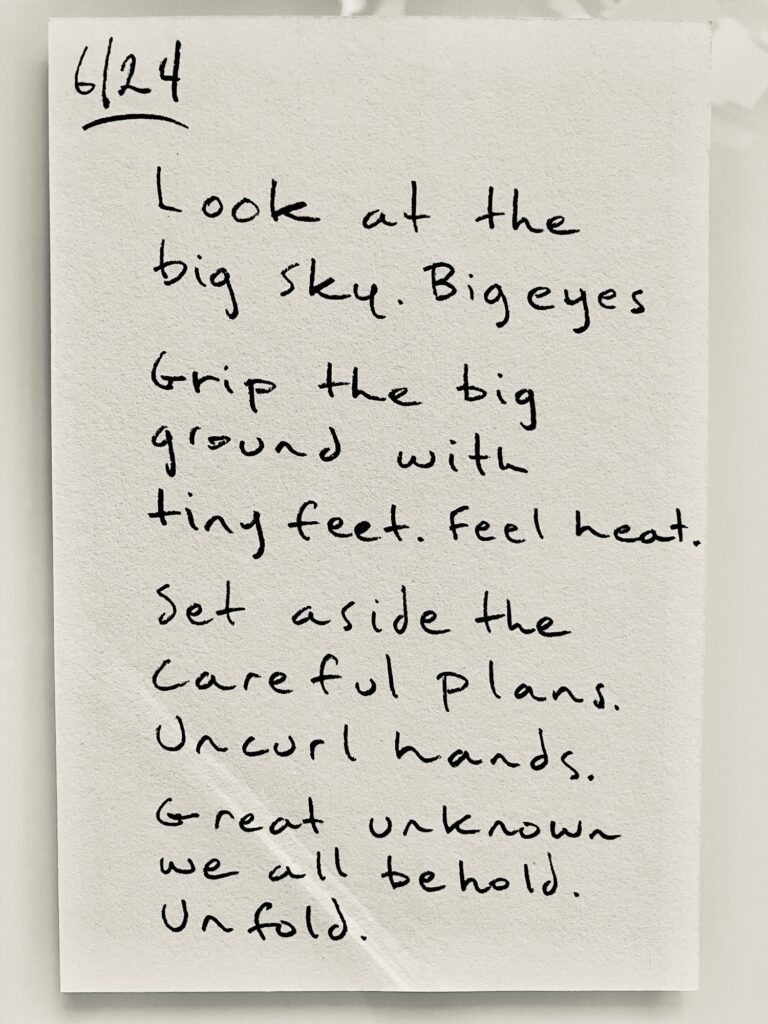 6/24
Look at the
big sky. Big eyes
Grip the big
ground with
tiny feet. Feel heat.
Set aside the
careful plans.
Uncurl hands.
Great unknown
we all behold.
Unfold.